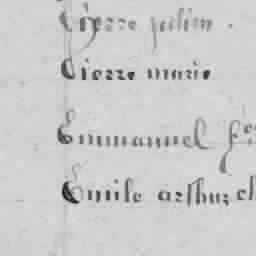 Pierre julien
Pierre marie
Emmanuel
Emile arthur